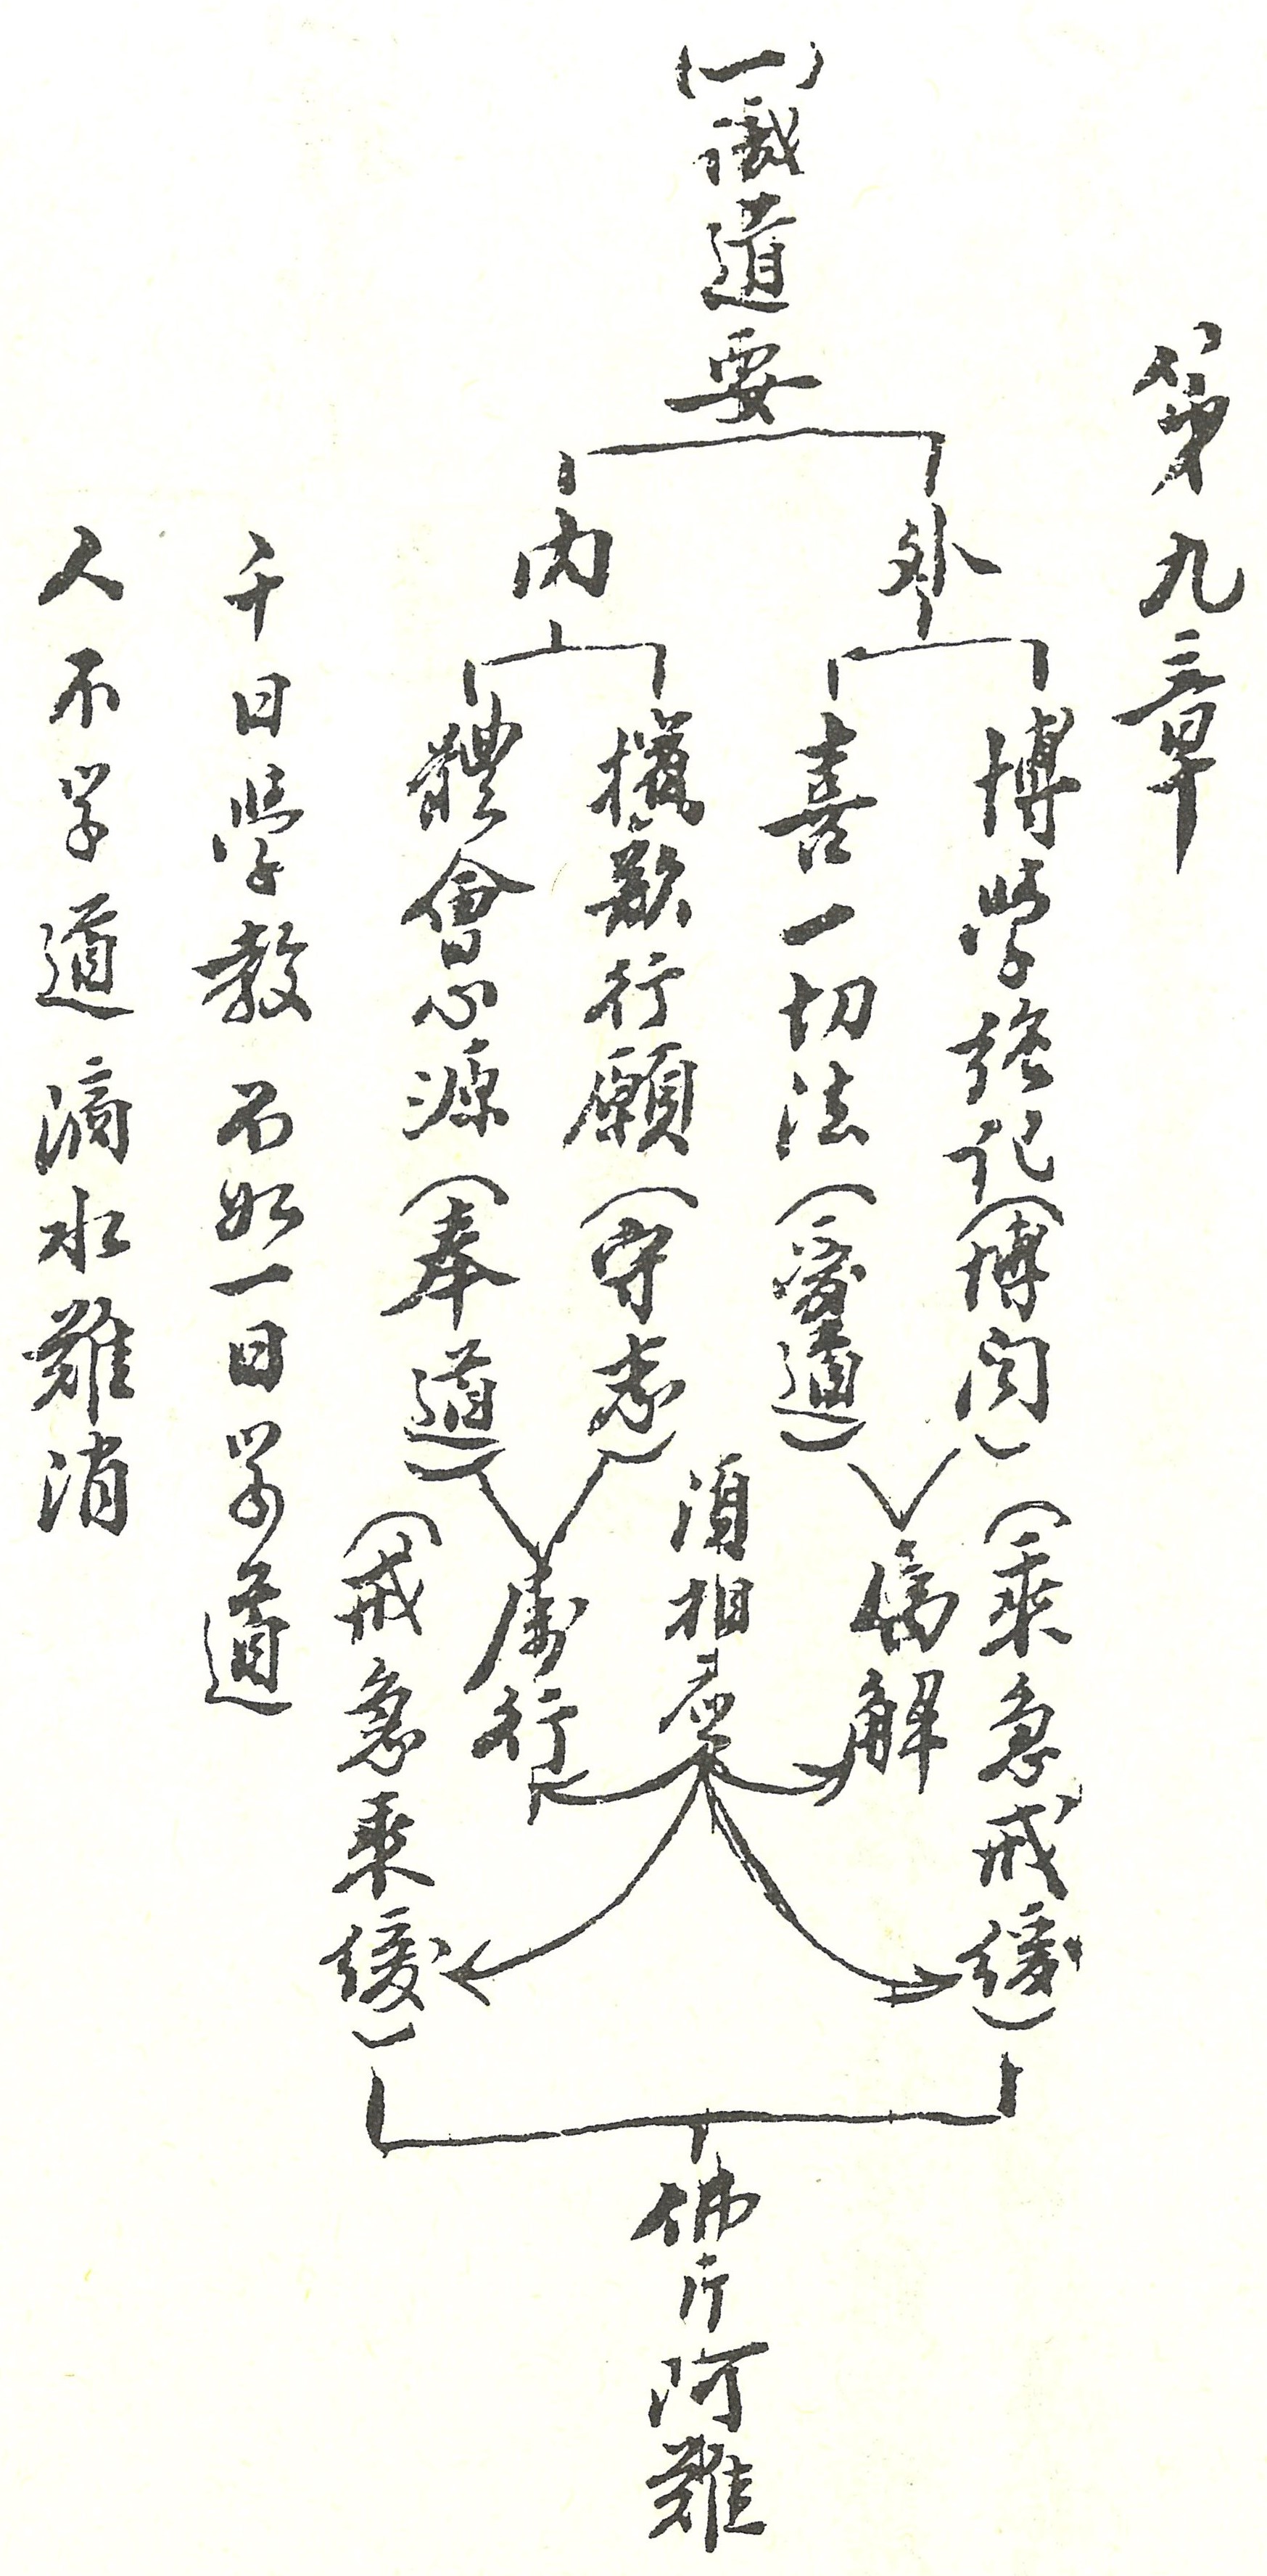 第九章
(一)識道要
外
內
博學強記(博聞)
喜一切法(愛道)
行願(守志)
體會心源(奉道)
(乘急戒緩)
属解
須相應
属行
(戒急乘緩)
佛斥阿難
千日學教 不如一日学道
人不学道 滴水難消